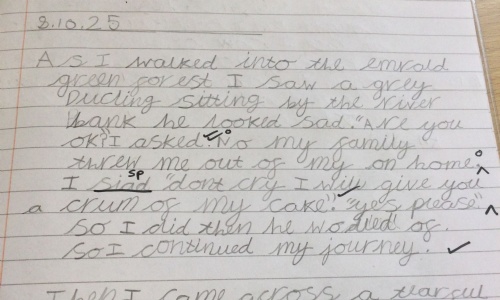 8.10.25
As I walked into the emrald
green forest I saw a grey
Ducling sitting by the river
bank he looked sad. "Are you
ok?" I asked. No my family
threw me out of my on home.
sp
I siad "dont cry I will give you
a crum of my cake". "yes please"
So I did then he wodled of.
So I continued my journey.
Then I came across a